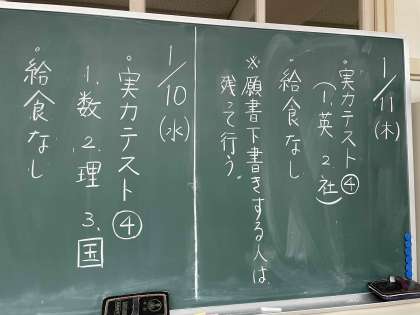 1/11(木)
・実力テスト④
(1.英 2.社)
給食なし
※願書下書きする人は、
残って行う。
1/10(水)
・実力テスト④
1.数 2.理 3.国
・給食なし